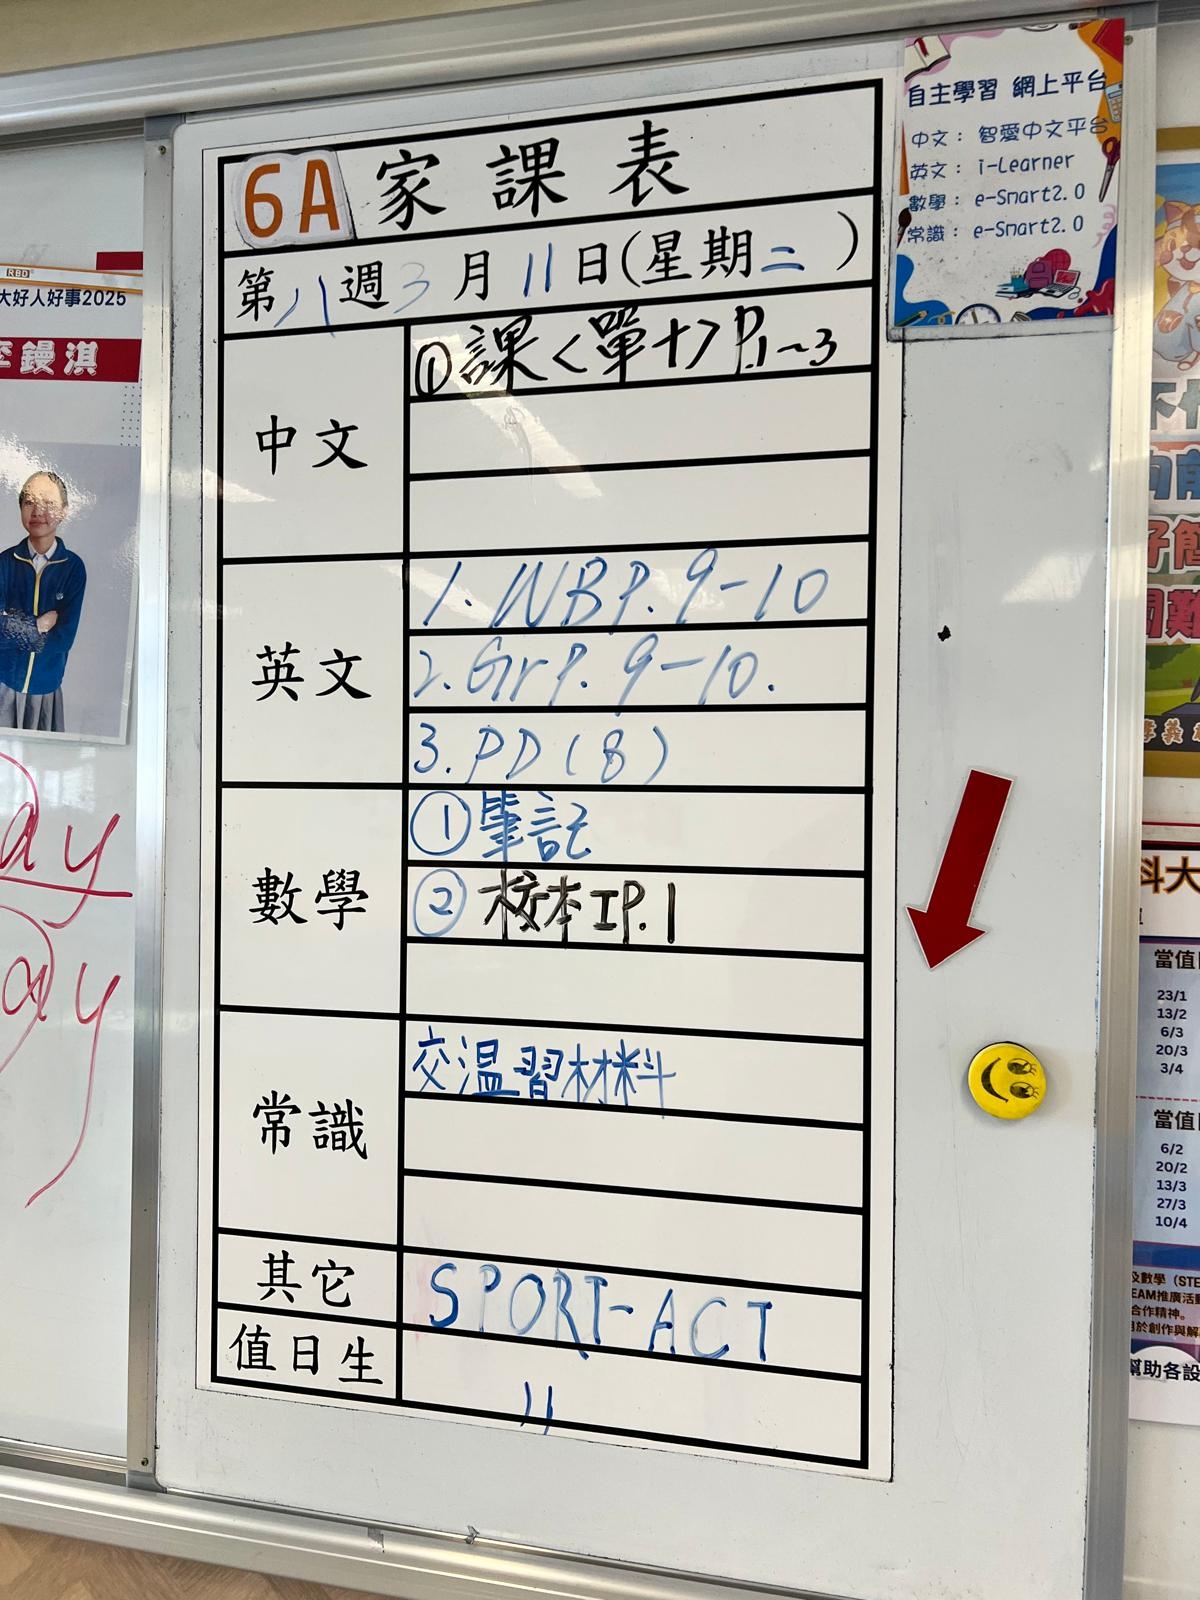 6A 家課表
第八週3月11日(星期二)
中文
①課<單十>P.1~3
英文
1. WBP. 9-10
2. GrP. 9-10.
3. PD(8)
數學
①筆記
② 校本IP.1
常識
交溫習材料
其它
SPORT-ACT
值日生
11
自主學習 網上平台
中文: 智愛中文平台
英文: i-Learner
數學: e-Smart2.0
常識: e-Smart2.0
RBD
大好人好事2025
李鏝淇
ay
ay
科大
當值
23/1
13/2
6/3
20/3
3/4
當值
6/2
20/2
13/3
27/3
10/4
及數學（STE
EAM推廣活動
合作精神。
於創作與解
幫助各設